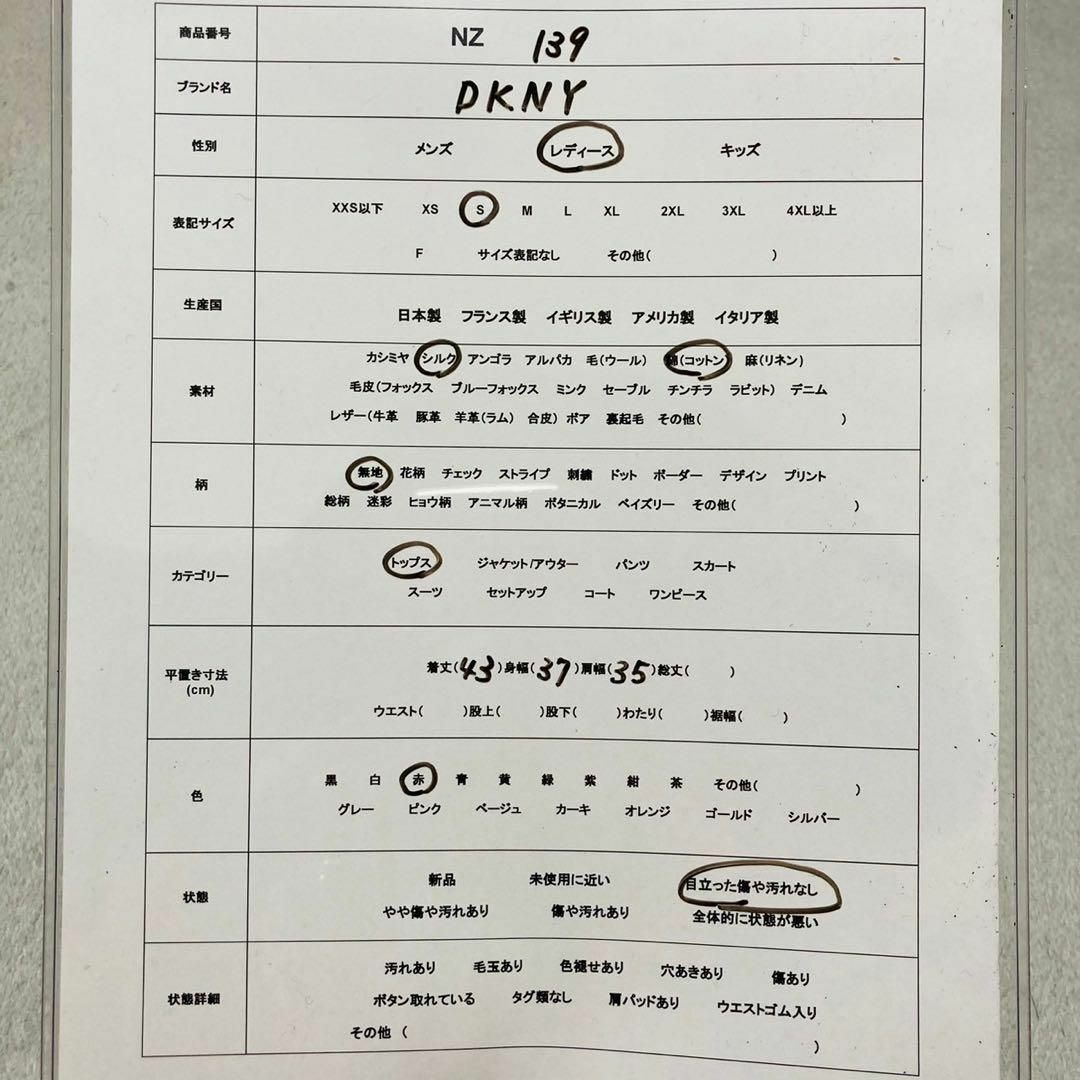 商品番号 NZ 139
ブランド名 DKNY
性別 メンズ レディース キッズ
表記サイズ XXS以下 XS S M L XL 2XL 3XL 4XL以上
F サイズ表記なし その他( )
生産国 日本製 フランス製 イギリス製 アメリカ製 イタリア製
素材 カシミヤ シルク アンゴラ アルパカ 毛(ウール) 綿(コットン) 麻(リネン)
毛皮(フォックス ブルーフォックス ミンク セーブル チンチラ ラビット) デニム
レザー(牛革 豚革 羊革(ラム) 合皮) ボア 裏起毛 その他( )
柄 無地 花柄 チェック ストライプ 刺繍 ドット ボーダー デザイン プリント
総柄 迷彩 ヒョウ柄 アニマル柄 ボタニカル ペイズリー その他( )
カテゴリー トップス ジャケット/アウター パンツ スカート
スーツ セットアップ コート ワンピース
平置き寸法 (cm) 着丈(43)身幅(37)肩幅(35)総丈( )
ウエスト( )股上( )股下( )わたり( )裾幅( )
色 黒 白 赤 青 黄 緑 紫 紺 茶 その他( )
グレー ピンク ベージュ カーキ オレンジ ゴールド シルバー
状態 新品 未使用に近い 目立った傷や汚れなし
やや傷や汚れあり 傷や汚れあり 全体的に状態が悪い
状態詳細 汚れあり 毛玉あり 色褪せあり 穴あきあり 傷あり
ボタン取れている タグ類なし 肩パッドあり ウエストゴム入り
その他 ( )